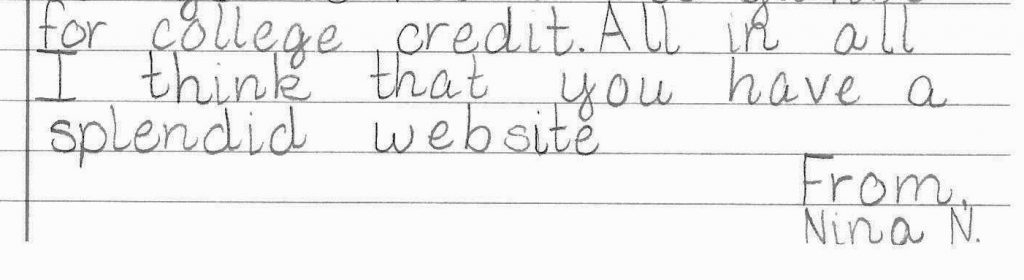 for college credit. All in all
I think that you have a
splendid website
From,
Nina N.